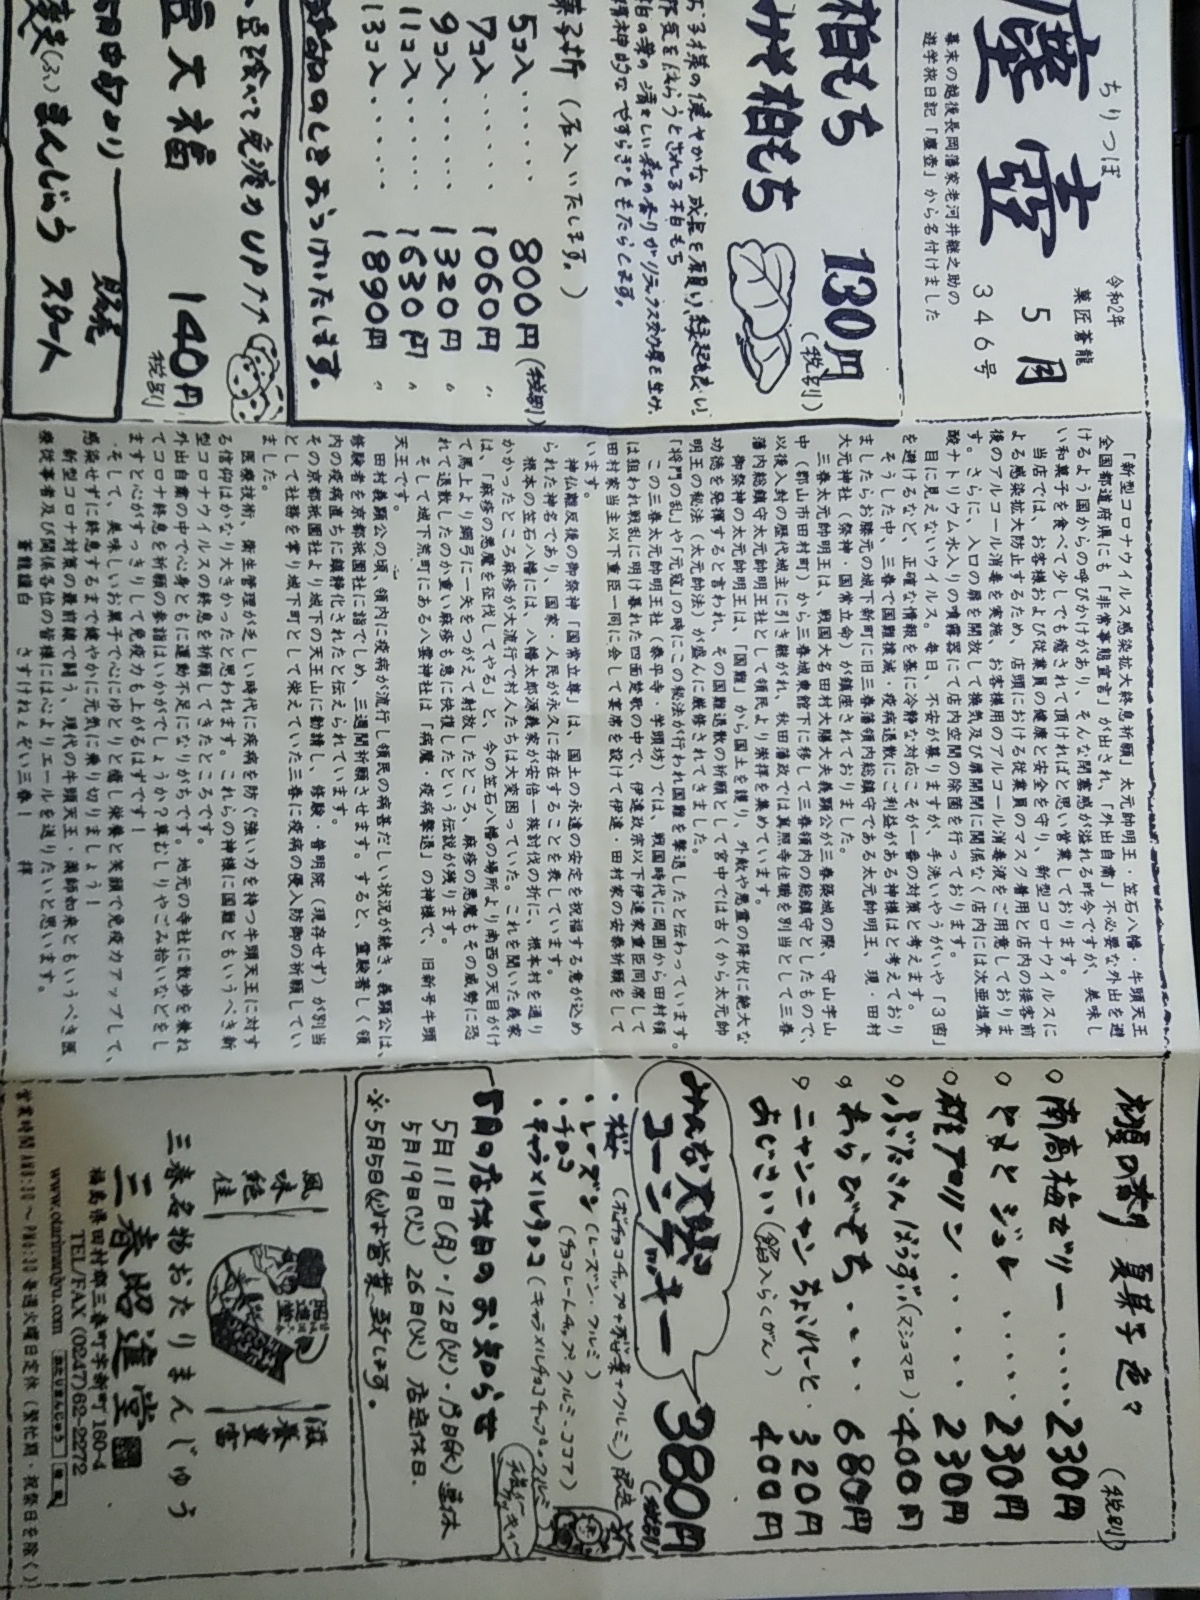 ちりつぼ
塵壺
令和2年
菓匠蒼龍
5月
346号
幕末の越後長岡藩家老河井継之助の
遊学旅日記「塵壺」から名付けました
柏もち
みそ柏もち
130円
(税別)
お子様の健やかな成長を願い、縁起も良い
邪気をはらうとされる柏もち
柏の葉の清々しい森の香りがリラックス効果を生み
精神的なやすらぎをもたらします。
菓子折(石入いたします。)
5コ入・・・・・800円(税別)
7コ入・・・・・1060円 〃
9コ入・・・・・1320円 〃
11コ入・・・・・1630円 〃
13コ入・・・・・1890円 〃
のしをおつけいたします。
豆を食べて免疫力UP↑↑
豆大福 140円
税別
5月中旬より 発売
まんじゅう スタート
「新型コロナウイルス感染拡大終息祈願」太元帥明王・笠石八幡・牛頭天王
全国都道府県にも「非常事態宣言」が出され、「外出自粛」不必要な外出を避
けるよう国からの呼びかけがあり、そんな閉塞感が溢れる昨今ですが、美味し
い和菓子を食べて少しでも癒されて頂ければと思い営業しております。
当店では、お客様および従業員の健康と安全を守り、新型コロナウイルスに
よる感染拡大防止するため、店頭における従業員のマスク着用と店内の接客前
後のアルコール消毒を実施、お客様用のアルコール消毒液をご用意しておりま
す。さらに、入口の扉を開放して換気及び扉開閉に関係なく店内には次亜塩素
酸ナトリウム水入りの噴霧器にて店内空間の除菌を行っております。
目に見えないウイルス。毎日、不安が募りますが、手洗いやうがいや「3密」
を避けるなど、正確な情報を基に冷静な対応こそが一番の対策と考えます。
そうした中、三春で国難撲滅・疫病退散にご利益がある神様はと考えており
ましたらお膝元の城下新町に旧三春藩領内総鎮守である太元帥明王、現・田村
大元神社(祭神・国常立命)が鎮座されておりました。
三春太元帥明王は、戦国大名田村大膳大夫義顕公が三春築城の際、守山字山
中(郡山市田村町)から三春城東館下に移して三春領内の総鎮守としたもので、
以後入封の歴代城主に引き継がれ、秋田藩政では真照寺住職を別当として三春
藩内総鎮守太元帥明王社として領民より崇拝を集めています。
御祭神の太元帥明王は、「国難」から国土を護り、外敵や悪霊の降伏に絶大な
功徳を発揮すると言われ、その国難退散の祈願として宮中では古くから太元帥
明王の秘法(太元帥法)が盛んに厳修されてきました。
「将門の乱」や「元寇」の時にこの秘法が行われ国難を撃退したと伝わっています。
この三春太元帥明王社(泰平寺・学頭坊)では、戦国時代に周囲から田村領
は狙われ戦乱に明け暮れた四面楚歌の中で、伊達政宗以下伊達家重臣同席して
田村家当主以下重臣一同に会して宴席を設けて伊達・田村家の安泰祈願をして
います。
神仏離反後の御祭神「国常立尊」は、国土の永遠の安定を祝福する意が込め
られた神名であり、国家・人民が永久に存在することを表しています。
根本の笠石八幡には、八幡太郎源義家が安倍一族討伐の折に、根本村を通り
かかったところ麻疹が大流行で村人たちは大変困っていた。これを聞いた義家
は、「麻疹の悪魔を征伐してやる」と、今の笠石八幡の場所より南西の天目がけ
て馬上より鋼弓に一矢をつがえて射放したところ、麻疹の悪魔もその威勢に恐
れて退散したのか重い麻疹も急に快復したという伝説が残ります。
そして城下荒町にある八雲神社は「病魔・疫病撃退」の神様で、旧新号牛頭
天王です。
田村義顕公の頃、領内に疫病が流行し領民の病甚だしい状況が続き、義顕公は、
修験者を京都祇園社に詣でしめ、三週間祈願させます。すると、霊験著しく領
内の疫病直ちに鎮静化されたと伝えられています。
その京都祇園社より城下の天王山に勧請し、修験・普明院(現存せず)が別当
として社務を掌り城下町として栄えていた三春に疫病の侵入防御の祈願してい
ました。
医療技術、衛生管理が乏しい時代に疾病を防ぐ強い力を持つ牛頭天王に対す
る信仰はかなり大きかったと思われます。これらの神様に国難ともいうべき新
型コロナウイルスの終息を祈願してきたところです。
外出自粛の中で心身ともに運動不足になりがちです。地元の寺社に散歩を兼ね
てコロナ終息を祈願の参詣はいかがでしょうか?草むしりやごみ拾いなどをし
ますと心がすっきりして免疫力も上がるはずです!
そして、美味しいお菓子で心にゆとりと癒し栄養と笑顔で免疫力アップして、
感染せずに終息するまで健やかに元気に乗り切りましょう!
新型コロナ対策の最前線で闘う、現代の牛頭天王・薬師如来ともいうべき医
療従事者及び関係各位の皆様には心よりエールを送りたいと思います。
蒼龍謹白 さすけねぇぞい三春! 拝
初夏の香り 夏菓子色々
(税別)
○南高梅ゼリー・・・・・230円
○とまとジュレ・・・・・230円
○桜プリン・・・・・230円
○ぶたさんぼうず(マシュマロ)・400円
○わらびもち・・・・680円
○ニャンニャンちょこれーと・320円
あじさい(餡入らくがん) 400円
みんな大好き
コーンクッキー 380円
(税別)
・レーズン(レーズン・クルミ)
・チョコ(チョコレートチップ・クルミ・ココア)
・キャラメルチョコ(キャラメルチョコチップ・アーモンド)
5月の店休日のお知らせ
5月11日(月)・12日(火)・13日(水)連休
5月19日(火)26日(火)店定休日.
※5月5日(火)は営業致します。
風味絶佳
滋養豊富
三春名物おたりまんじゅう
三春昭進堂
福島県田村郡三春町字新町160-4
TEL/FAX (0247)62-2272
www.otarimanjyu.com おたりまんじゅう 検索
営業時間AM8:30～PM6:30毎週火曜日定休(繁忙期・祝祭日を除く)